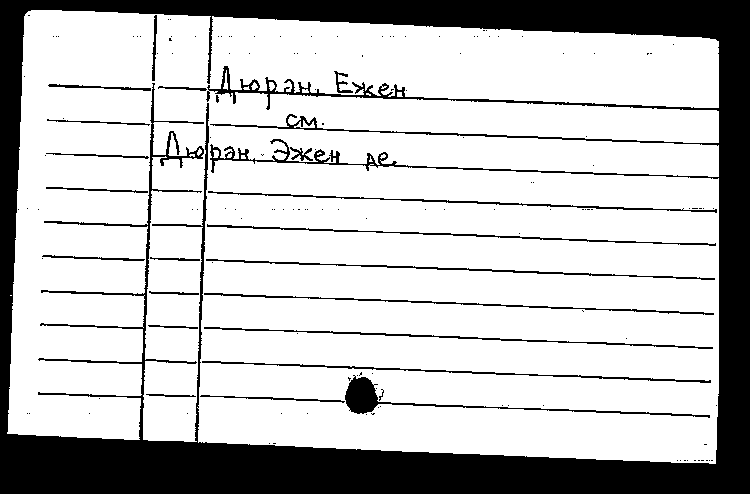 Дюран, Ежен
см.
Дюран, Эжен де.